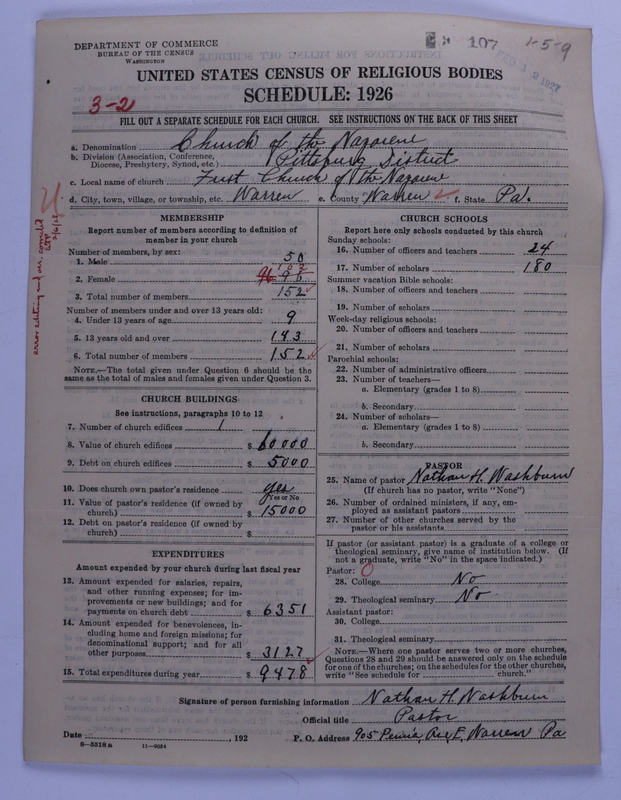 DEPARTMENT OF COMMERCE
BUREAU OF THE CENSUS
WASHINGTON
107
1-5-9
FEB 12 1927
UNITED STATES CENSUS OF RELIGIOUS BODIES
SCHEDULE: 1926
3-2
FILL OUT A SEPARATE SCHEDULE FOR EACH CHURCH. SEE INSTRUCTIONS ON THE BACK OF THIS SHEET
a. Denomination Church of the Nazarene
b. Division (Association, Conference, Diocese, Presbytery, Synod, etc.) Pittsburg District
c. Local name of church First Church of the Nazarene
d. City, town, village, or township, etc. Warren e. County Warren f. State Pa.
error editing and
MEMBERSHIP
Report number of members according to definition of
member in your church
Number of members, by sex:
1. Male 50
2. Female 96 102
3. Total number of members 152
Number of members under and over 13 years old:
4. Under 13 years of age 9
5. 13 years old and over 143
6. Total number of members 152
NOTE.—The total given under Question 6 should be
same as the total of males and females given under Question 3.
CHURCH BUILDINGS
See instructions, paragraphs 10 to 12
7. Number of church edifices 1
8. Value of church edifices $ 60000
9. Debt on church edifices $ 5000
10. Does church own pastor's residence yes
(Yes or No)
11. Value of pastor's residence (if owned by
church) $ 15000
12. Debt on pastor's residence (if owned by
church) $
EXPENDITURES
Amount expended by your church during last fiscal year
13. Amount expended for salaries, repairs,
and other running expenses; for im-
provements or new buildings; and for
payments on church debt $ 6351
14. Amount expended for benevolences, in-
cluding home and foreign missions; for
denominational support; and for all
other purposes $ 3127
15. Total expenditures during year $ 9478
CHURCH SCHOOLS
Report here only schools conducted by this church
Sunday schools:
16. Number of officers and teachers 24
17. Number of scholars 180
Summer vacation Bible schools:
18. Number of officers and teachers
19. Number of scholars
Week-day religious schools:
20. Number of officers and teachers
21. Number of scholars
Parochial schools:
22. Number of administrative officers
23. Number of teachers—
a. Elementary (grades 1 to 8)
b. Secondary
24. Number of scholars—
a. Elementary (grades 1 to 8)
b. Secondary
PASTOR
25. Name of pastor Nathan H. Washburn
(If church has no pastor, write "None")
26. Number of ordained ministers, if any, em-
ployed as assistant pastors
27. Number of other churches served by the
pastor or his assistants
If pastor (or assistant pastor) is a graduate of a college or
theological seminary, give name of institution below. (If
not a graduate, write "No" in the space indicated.)
Pastor: 0
28. College No
29. Theological seminary No
Assistant pastor:
30. College
31. Theological seminary
NOTE.—Where one pastor serves two or more churches,
Questions 28 and 29 should be answered only on the schedule
for one of the churches; on the schedules for the other churches,
write "See schedule for church."
Signature of person furnishing information Nathan H. Washburn
Official title Pastor
Date , 192 P. O. Address 905 Penna. Ave E, Warren Pa
8-5518a 11-9024